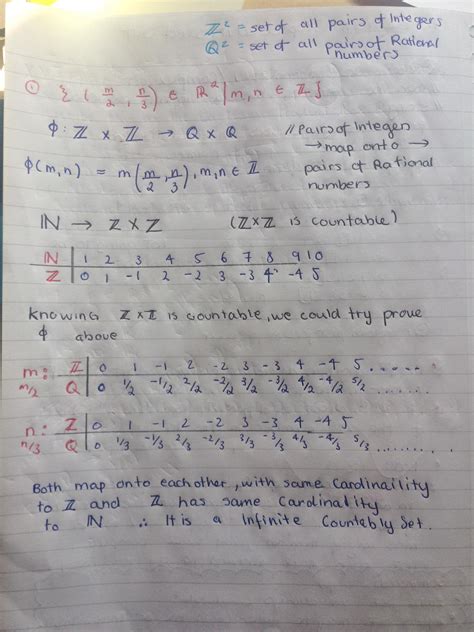 ℤ² = set of all pairs of Integers
Q² = set of all pairs of Rational
numbers
① { ( m/2 , n/3 ) ∈ ℝ² | m,n ∈ ℤ }
ϕ: ℤ × ℤ → Q × Q // Pairs of Integers
→ map onto →
ϕ(m,n) = m(m/2, n/3), m,n ∈ ℤ pairs of Rational
numbers
ℕ → ℤ × ℤ (ℤ×ℤ is countable)
ℕ | 1 2 3 4 5 6 7 8 9 10
ℤ | 0 1 -1 2 -2 3 -3 4 -4 5
Knowing ℤ×ℤ is countable, we could try prove
ϕ above
m: ℤ | 0 1 -1 2 -2 3 -3 4 -4 5 .....
m/2 Q | 0 1/2 -1/2 2/2 -2/2 3/2 -3/2 4/2 -4/2 5/2 .......
n: ℤ | 0 1 -1 2 -2 3 -3 4 -4 5
n/3 Q | 0 1/3 -1/3 2/3 -2/3 3/3 -3/3 4/3 -4/3 5/3 ........
Both map onto each other, with same Cardinaility
to ℤ and ℤ has same Cardinality
to ℕ ∴ It is a Infinite Countably Set.